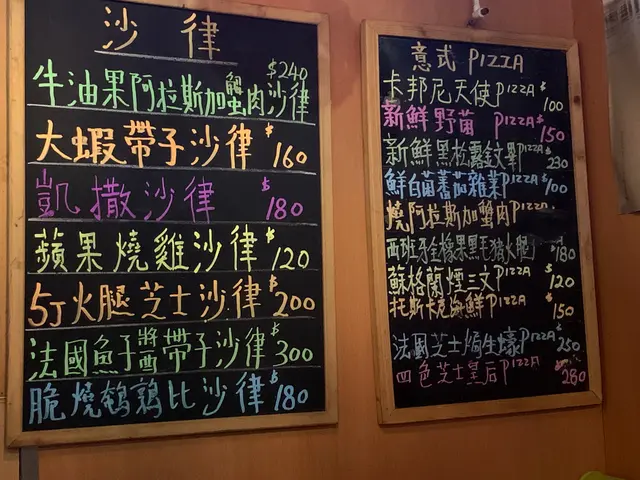 沙律
牛油果阿拉斯加蟹肉沙律 $240
大蝦帶子沙律 $160
凱撒沙律 $180
蘋果燒雞沙律 $120
5J火腿芝士沙律 $200
法國魚子醬帶子沙律 $300
脆燒鵪鶉比沙律 $180
意式 PIZZA
卡邦尼天使PIZZA $100
新鮮野菌 PIZZA $150
新鮮黑松露 PIZZA $230
鮮白菌蕃茄雜菜PIZZA $100
燒阿拉斯加蟹肉PIZZA
西班牙橡果黑毛豬火腿 $180
蘇格蘭煙三文PIZZA $120
托斯卡尼海鮮PIZZA $150
法國芝士焗生蠔PIZZA $250
四色芝士皇后PIZZA $280